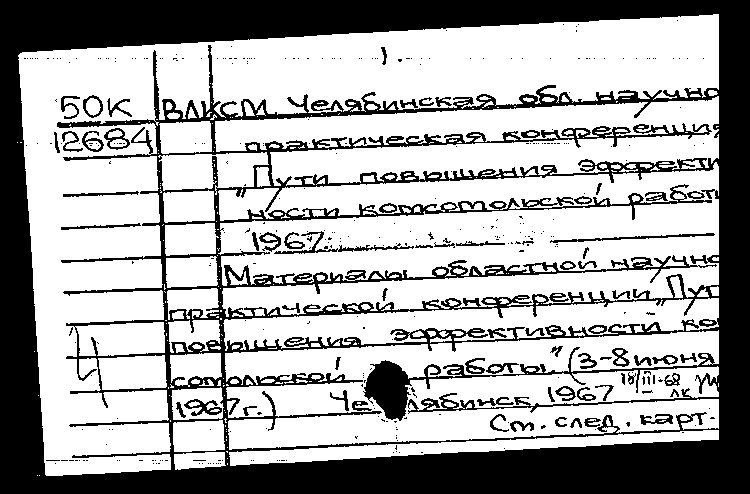 1.
50К ВЛКСМ. Челябинская обл. научно
12684 практическая конференция
„Пути повышения эффекти
ности комсомольской работы
1967.
Материалы областной научно
практической конференции „Пут
повышения эффективности ко
4
сомольской работы." (3-8 июня
1967г.) Челябинск, 1967 18/III-68
лк
См. след. карт.